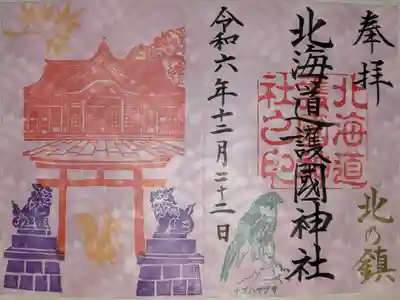 奉拝
北海道護國神社
北海道
護國神
社之印
北の鎮
令和六年十二月二十二日